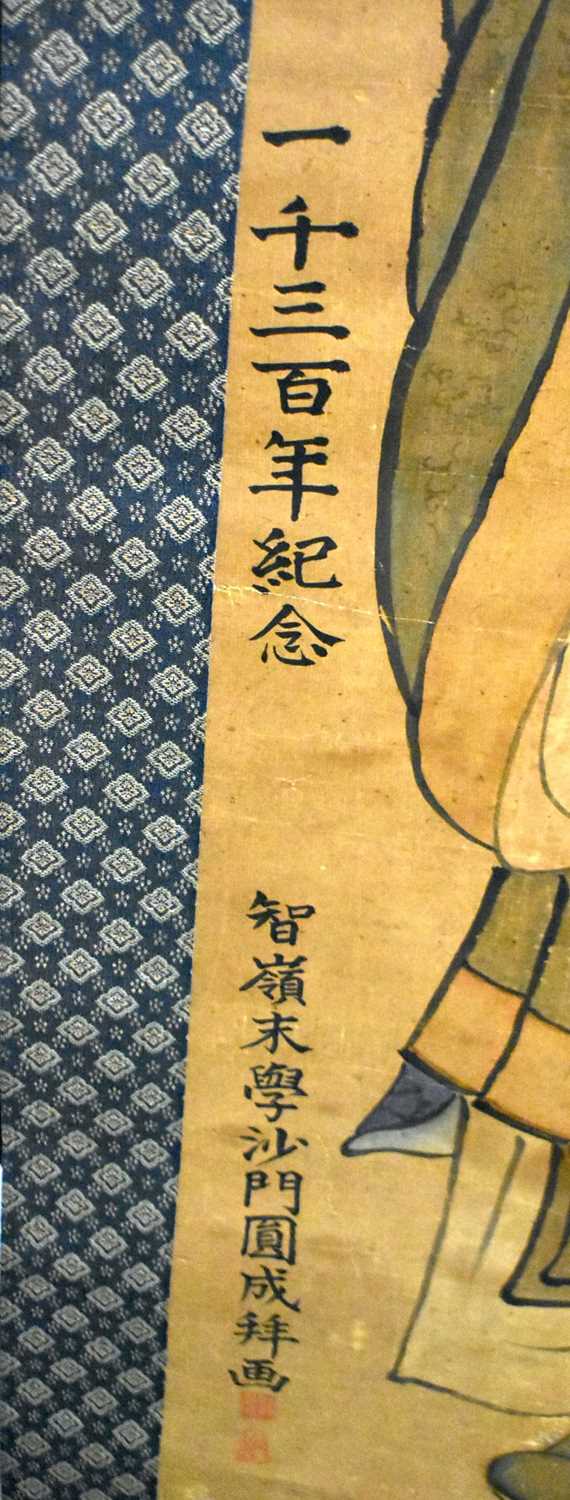 一千三百年紀念
智嶺末學沙門圓成拜画